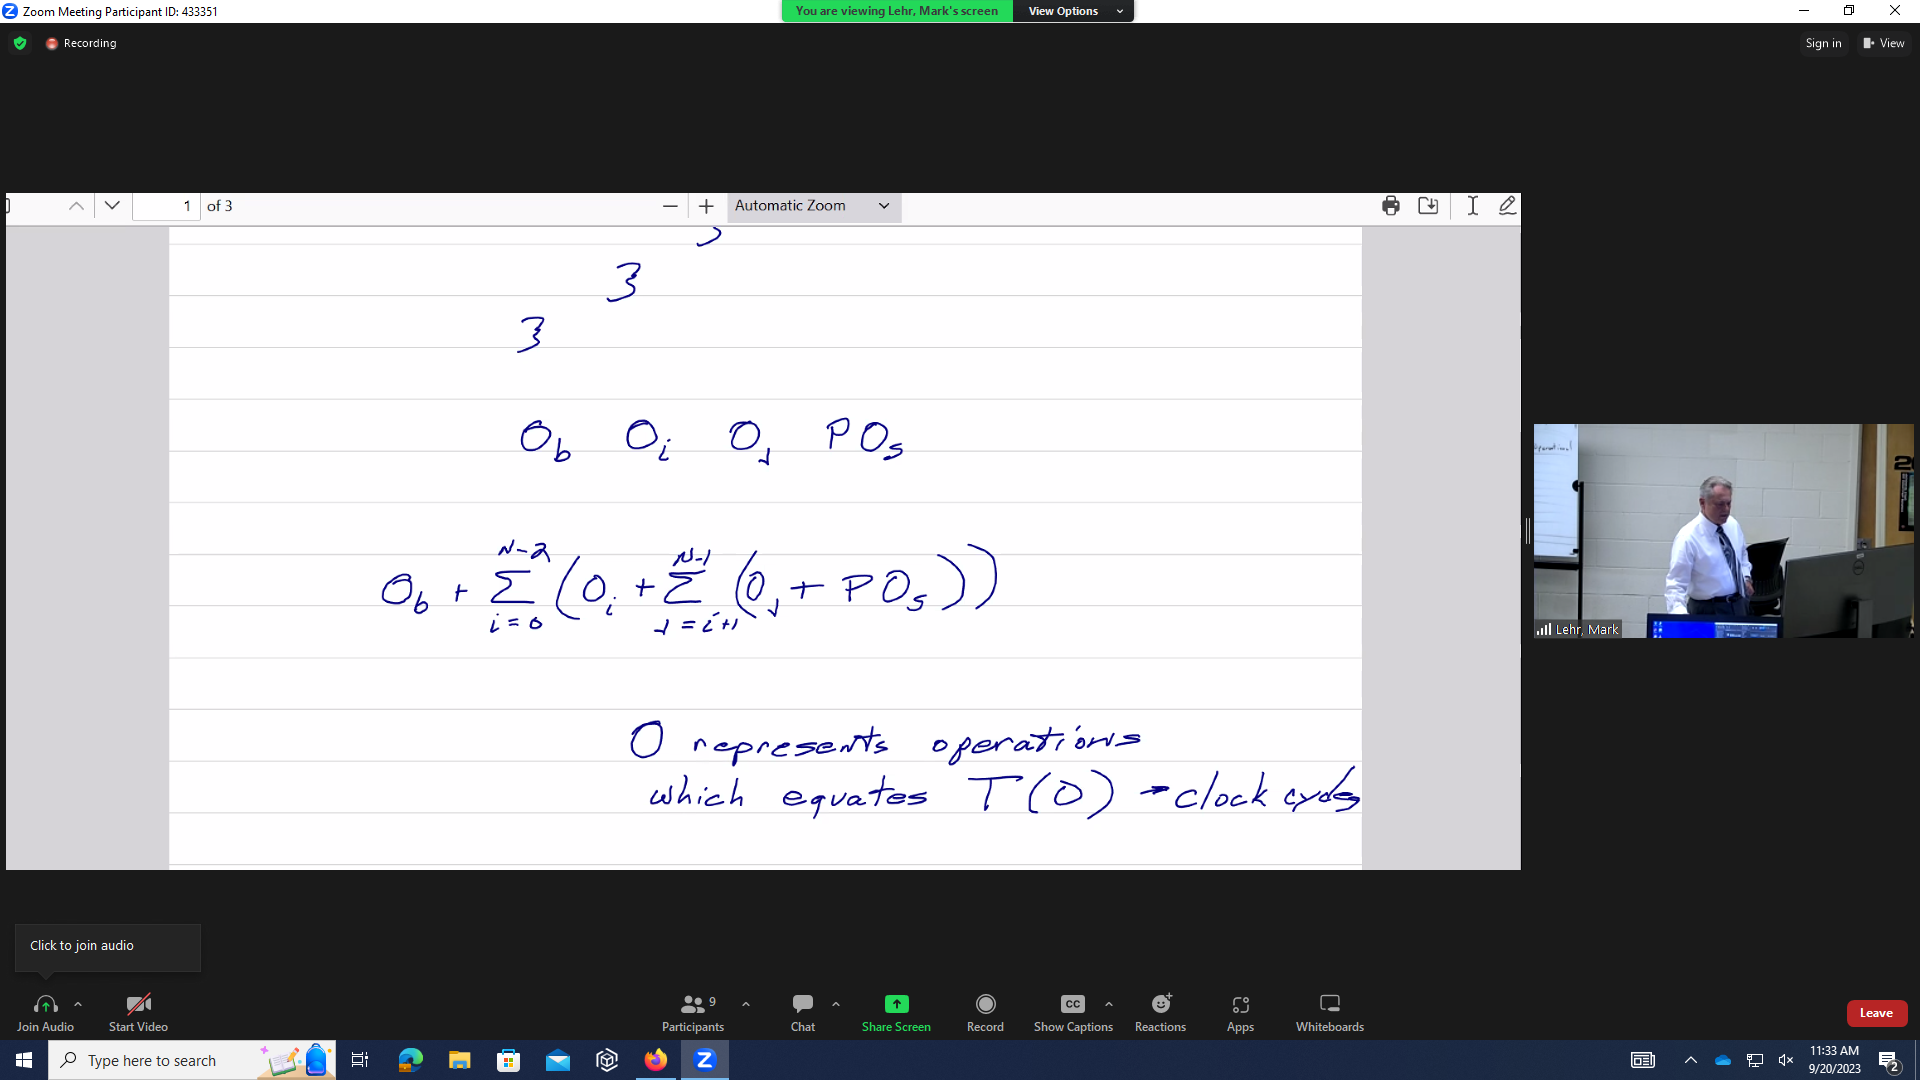 Zoom Meeting Participant ID: 433351
You are viewing Lehr, Mark's screen
View Options
Recording
Sign in
View
1 of 3
Automatic Zoom
}
}
}
O_b O_i O_j PO_s
O_b + Σ_{i=0}^{N-2} (O_i + Σ_{j=i+1}^{N-1} (O_j + PO_s))
O represents operations
which equates T(O) - clock cycles
Lehr, Mark
Click to join audio
Join Audio
Start Video
Participants
9
Chat
Share Screen
CC
Record
Show Captions
Reactions
Apps
Whiteboards
Leave
Type here to search
11:33 AM
9/20/2023
2